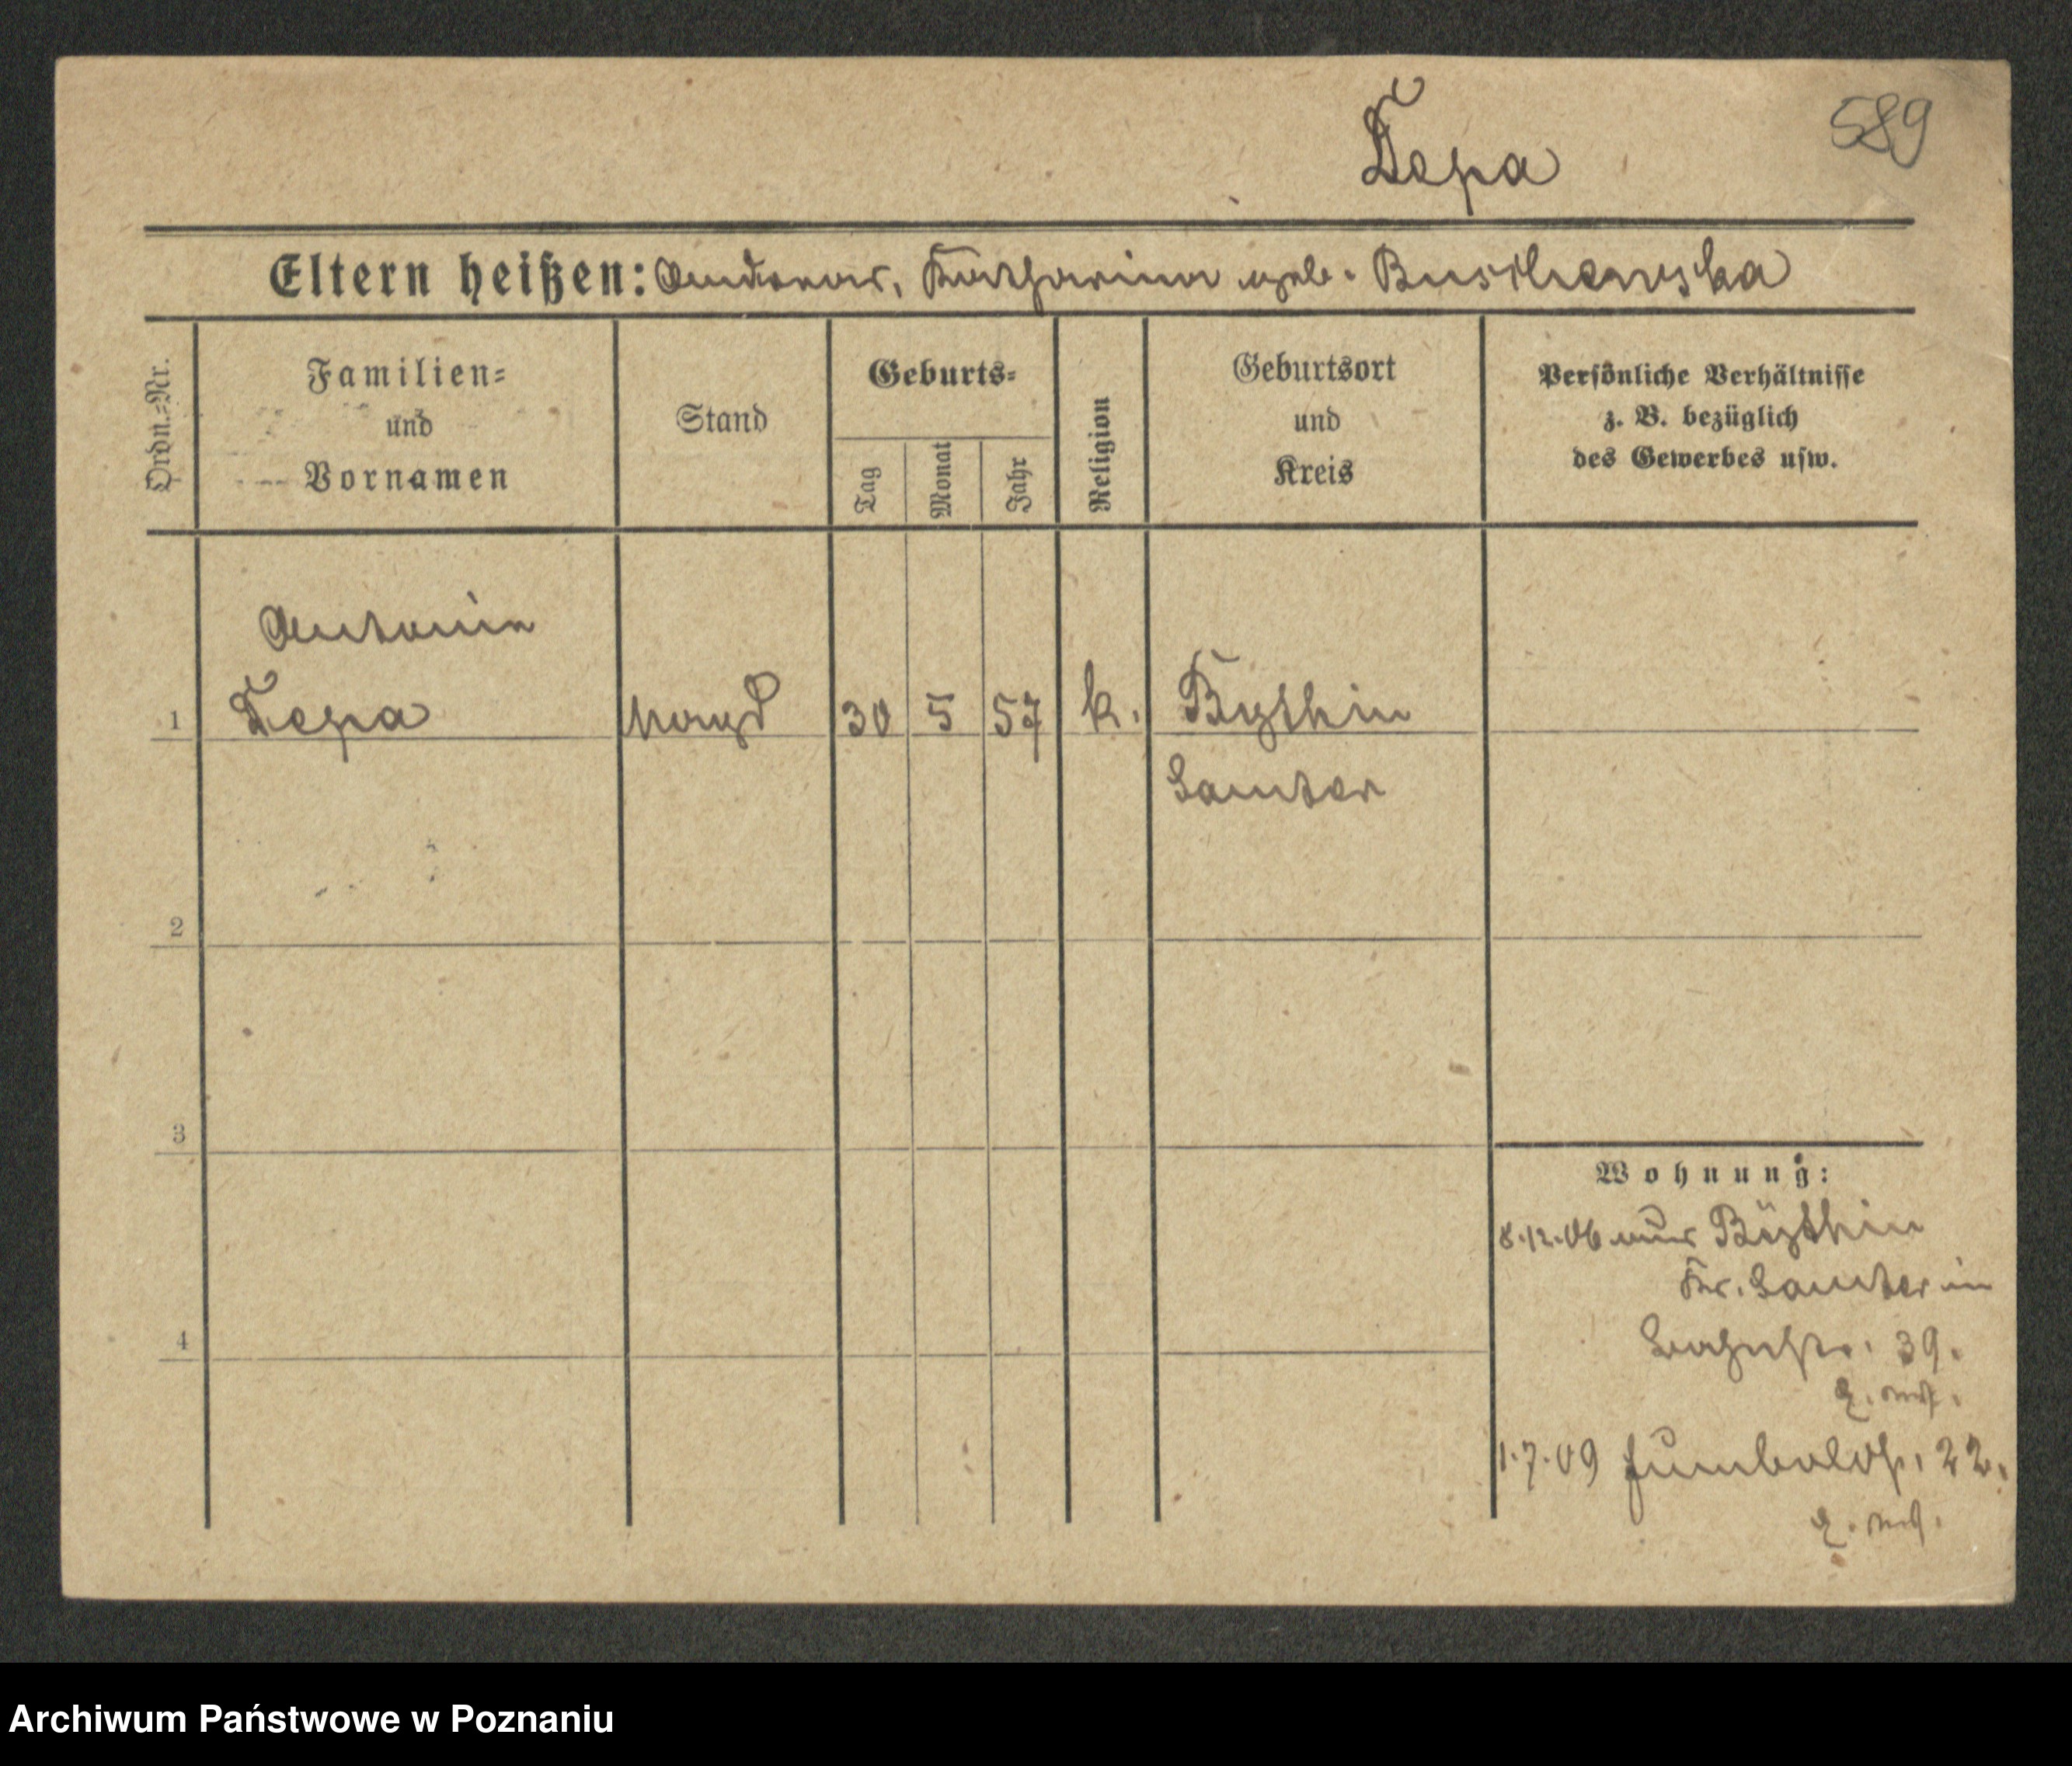 589
Tepa
Eltern heißen: Andreas, Katharina geb. Buschewska
Ordn.=Nr.
Familien=
und
Vornamen
Stand
Geburts=
Tag
Monat
Jahr
Religion
Geburtsort
und
Kreis
Persönliche Verhältnisse
z. B. bezüglich
des Gewerbes usw.
Antonie
1 Tepa Magd 30 5 57 k. Bythin
Samter
2
3
4
Wohnung:
8.12.06 aus Bythin
Kr. Samter in
39.
1.7.09 22.
Archiwum Państwowe w Poznaniu